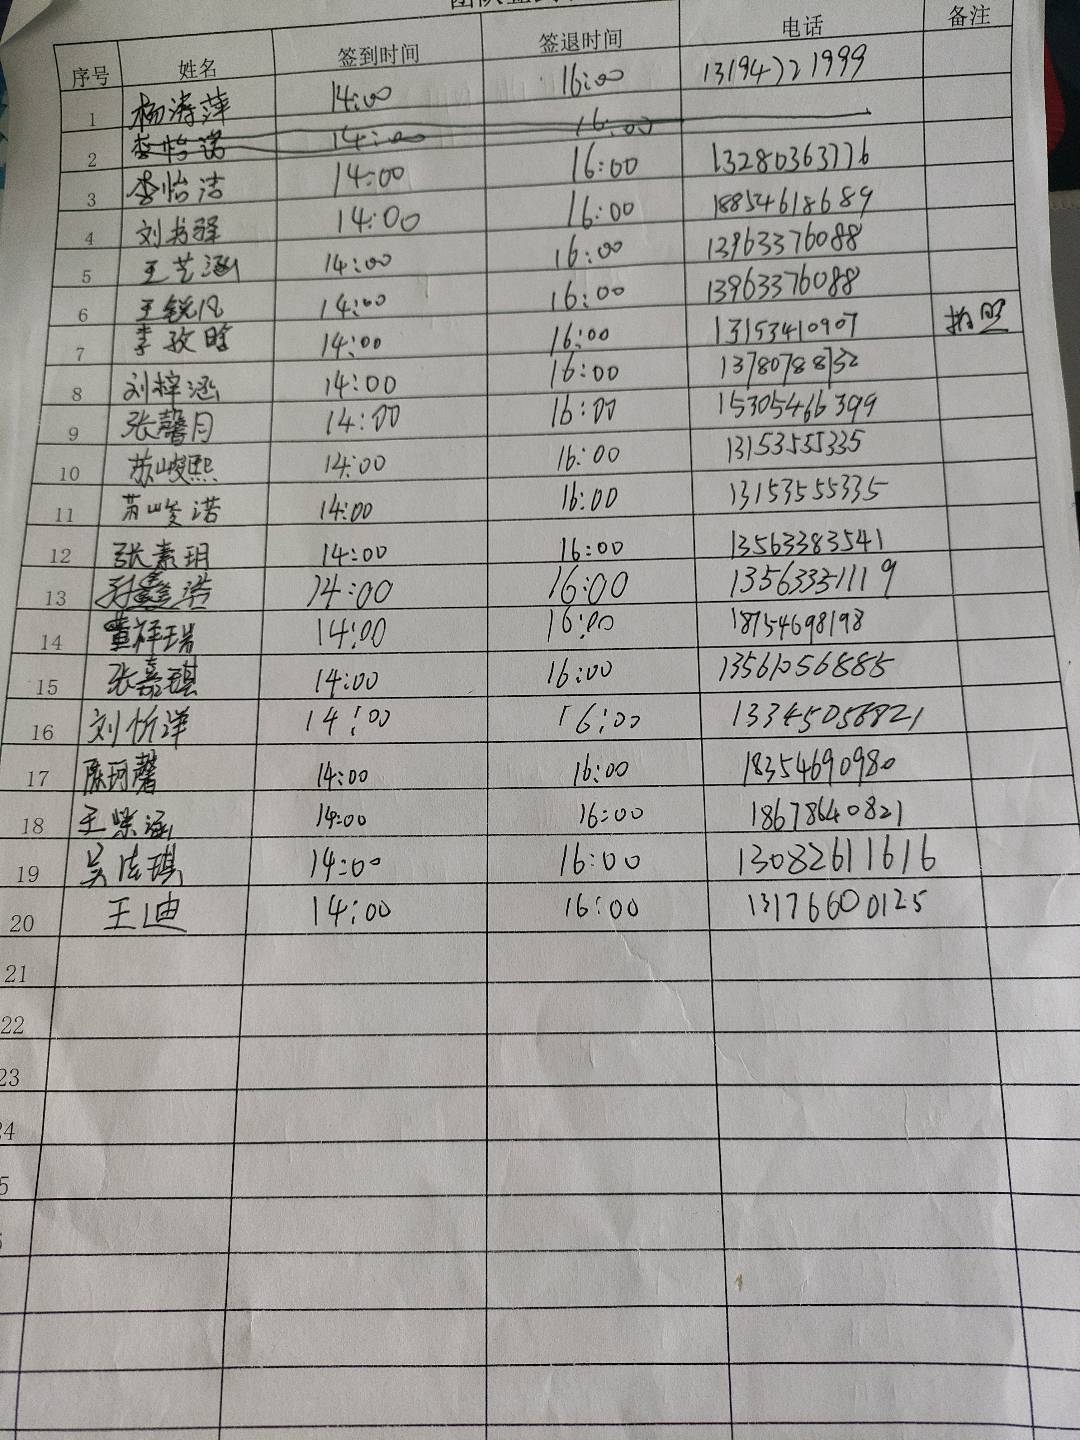 序号 姓名 签到时间 签退时间 电话 备注
1 杨涛萍 14:00 16:00 13194721999
2 李怡诺 14:00 16:00
3 李怡洁 14:00 16:00 13280363776
4 刘书驿 14:00 16:00 18854618689
5 王艺涵 14:00 16:00 13963376088
6 王锐凡 14:00 16:00 13963376088
7 李孜晗 14:00 16:00 13153410907 拍照
8 刘梓涵 14:00 16:00 13780788752
9 张馨月 14:00 16:00 15305466399
10 苏峻熙 14:00 16:00 13153555335
11 苏峻诺 14:00 16:00 13153555335
12 张素玥 14:00 16:00 13563383541
13 孙鑫浩 14:00 16:00 13563351119
14 董祥瑞 14:00 16:00 18754698198
15 张嘉琪 14:00 16:00 13561056885
16 刘忻洋 14:00 16:00 13345056821
17 陈珂馨 14:00 16:00 18354690980
18 王紫涵 14:00 16:00 18678640821
19 吴佳琪 14:00 16:00 13082611616
20 王迪 14:00 16:00 13176600125
21
22
23